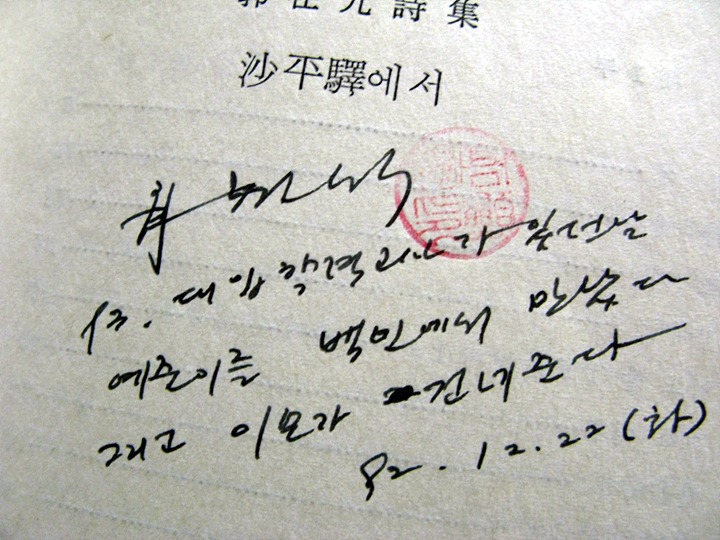 郭在九詩集
沙平驛에서
대입학력고사가 있던날
예준이를 백민에서 만났다
그리고 이모가 건네준다
92.12.22 (화)